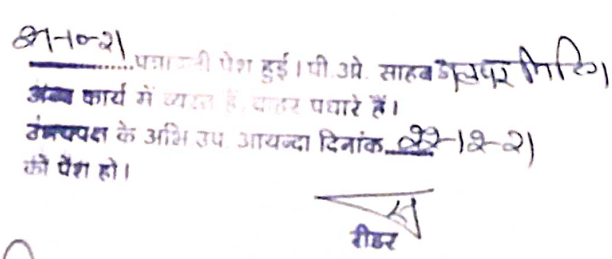 पत्रावली पेश हुई। पी.अो. साहब
अन्य कार्य में व्यस्त है, बाहर पधारे हैं।
उभयपक्ष के अभि उप. आयन्दा दिनांक 22-12-21
को पेश हो।
रीडर